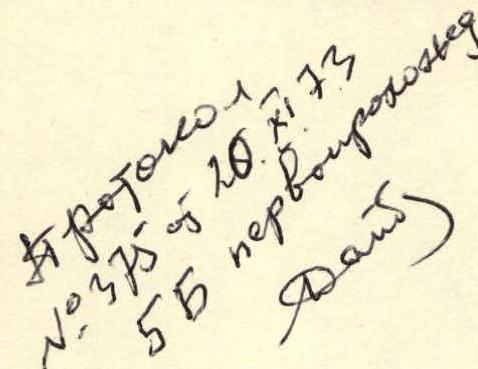 Протокол
№ 375 от 20.XI.73
5Б первопрохожд